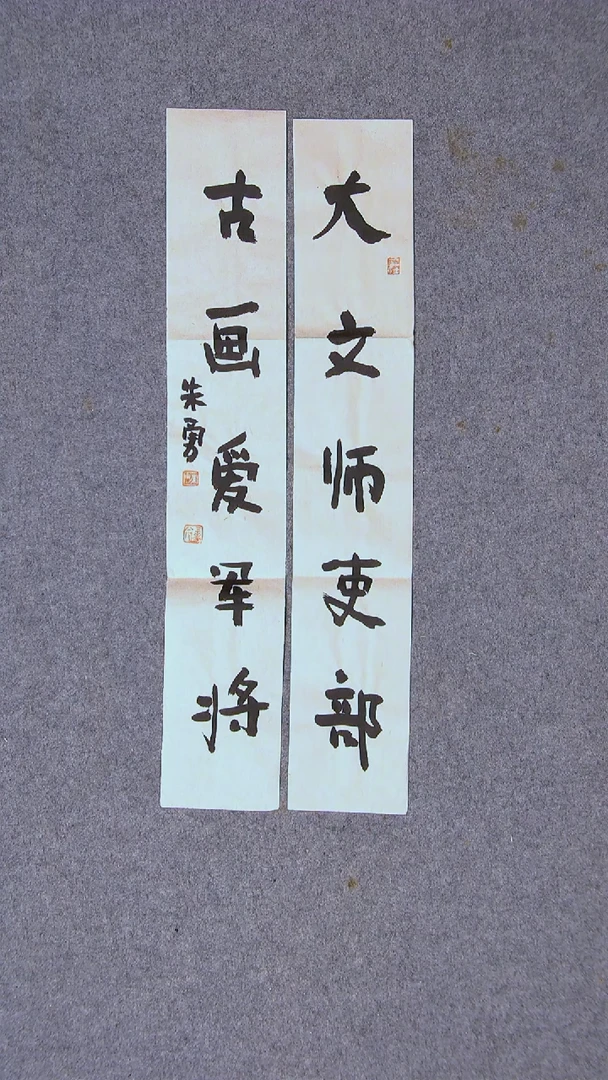 大文师吏部
古画爱军将
朱勇